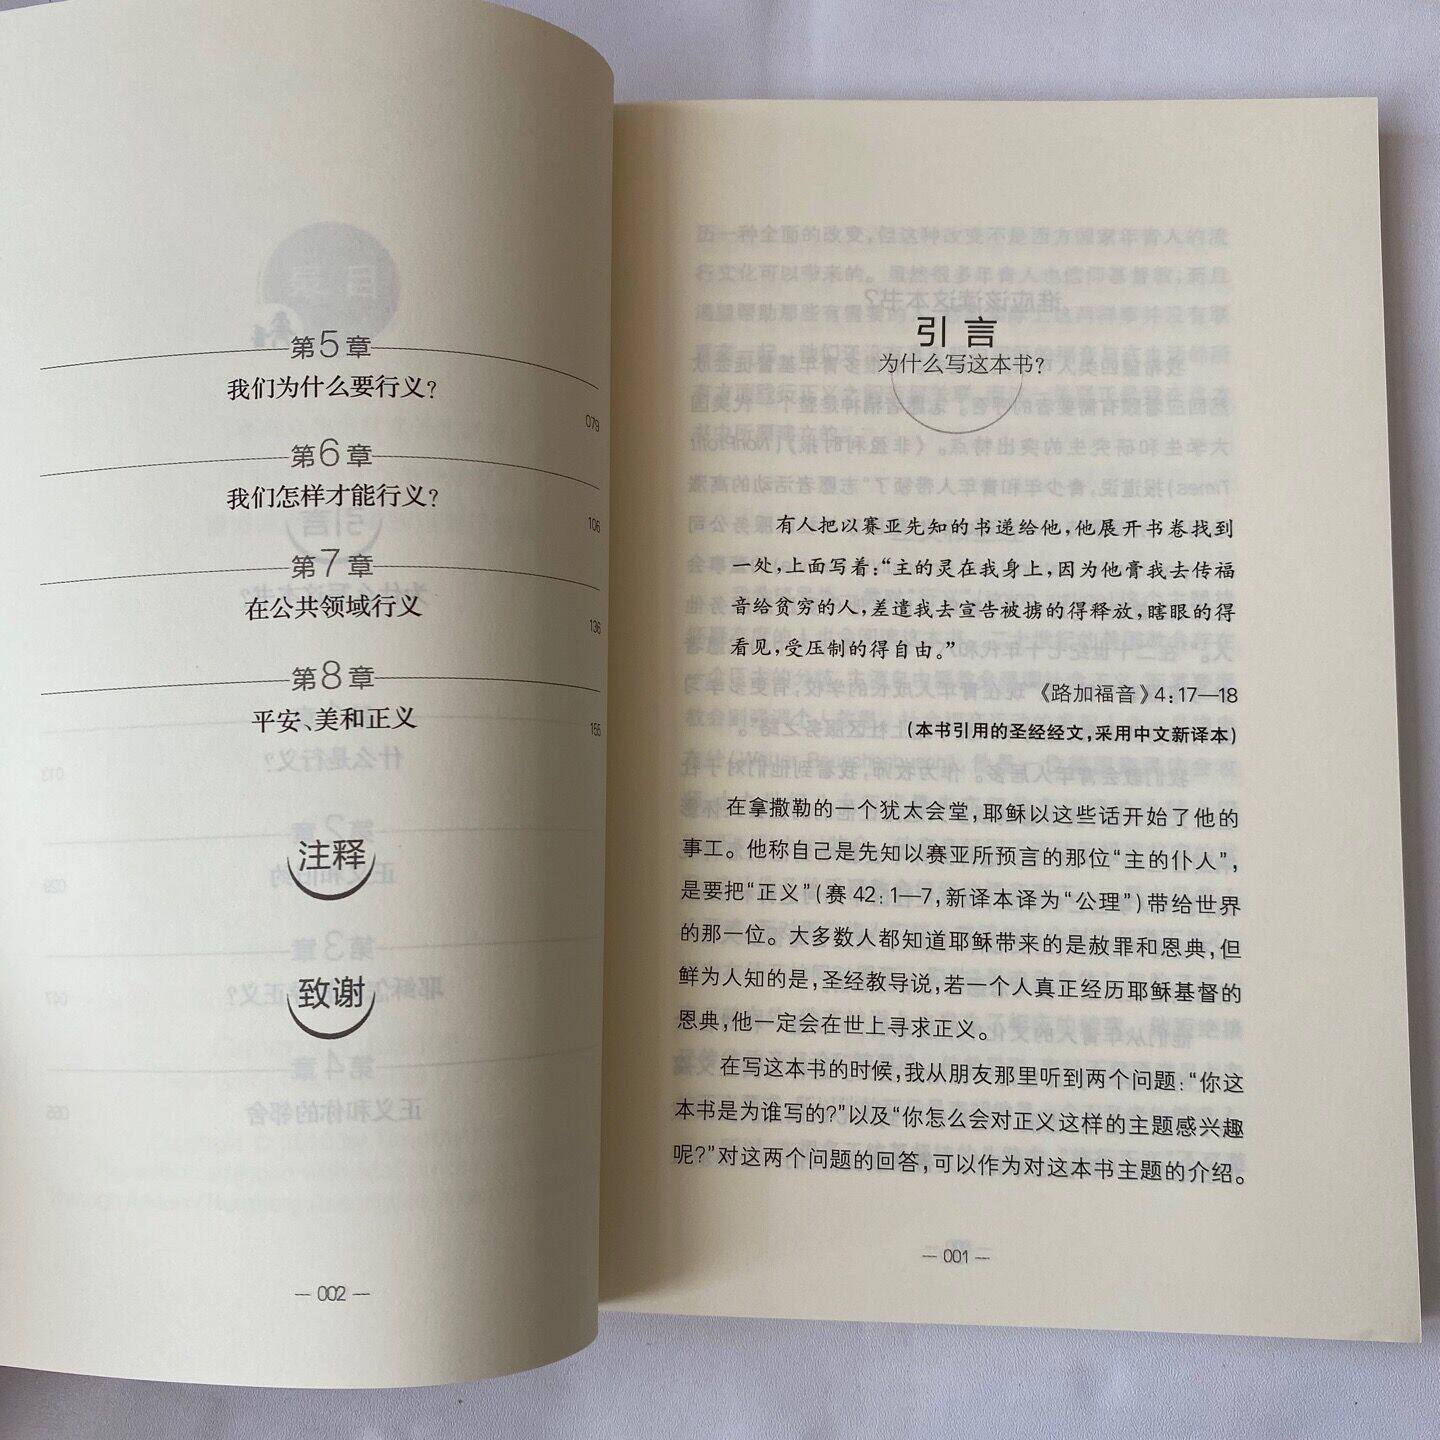 第5章
我们为什么要行义?
079
第6章
我们怎样才能行义?
106
第7章
在公共领域行义
136
第8章
平安、美和正义
155
注释
致谢
— 002 —
引言
为什么写这本书?
有人把以赛亚先知的书递给他,他展开书卷找到
一处,上面写着:“主的灵在我身上,因为他膏我去传福
音给贫穷的人,差遣我去宣告被掳的得释放,瞎眼的得
看见,受压制的得自由。”
《路加福音》4:17—18
(本书引用的圣经经文,采用中文新译本)
在拿撒勒的一个犹太会堂,耶稣以这些话开始了他的
事工。他称自己是先知以赛亚所预言的那位“主的仆人”,
是要把“正义”(赛42:1—7,新译本译为“公理”)带给世界
的那一位。大多数人都知道耶稣带来的是赦罪和恩典,但
鲜为人知的是,圣经教导说,若一个人真正经历耶稣基督的
恩典,他一定会在世上寻求正义。
在写这本书的时候,我从朋友那里听到两个问题:“你这
本书是为谁写的?”以及“你怎么会对正义这样的主题感兴趣
呢?”对这两个问题的回答,可以作为对这本书主题的介绍。
— 001 —